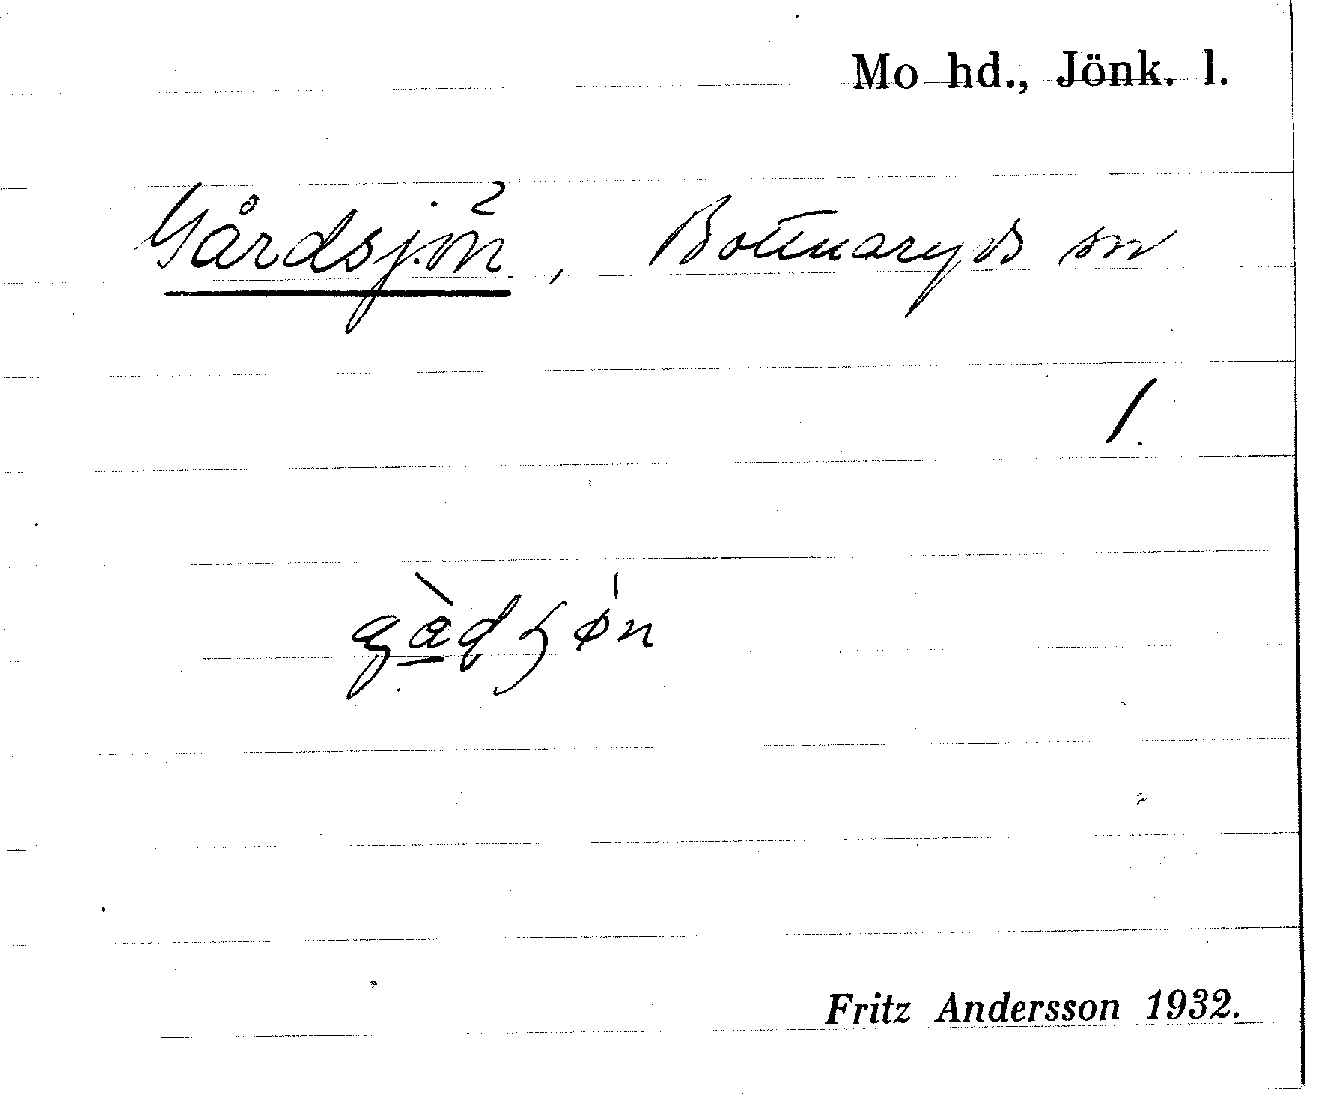 Mo hd., Jönk. l.
Gårdsjön 2, Bottnaryds sn
1.
Fritz Andersson 1932.